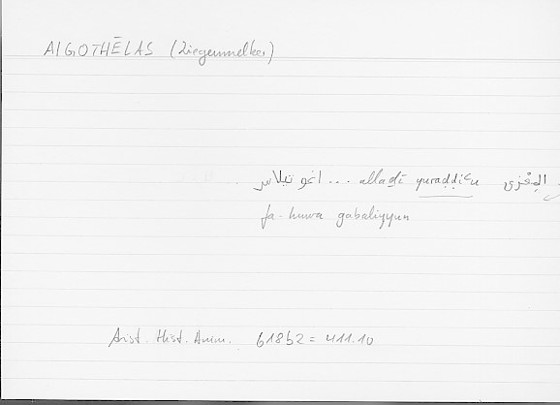 AIGOTHĒLAS (Ziegenmelker)
اغو تيلاس ... allaḏī yuraḍḍiʿu المِعْزى
fa-huwa gabaliyyun
Arist. Hist. Anim. 618b2 = 411.10